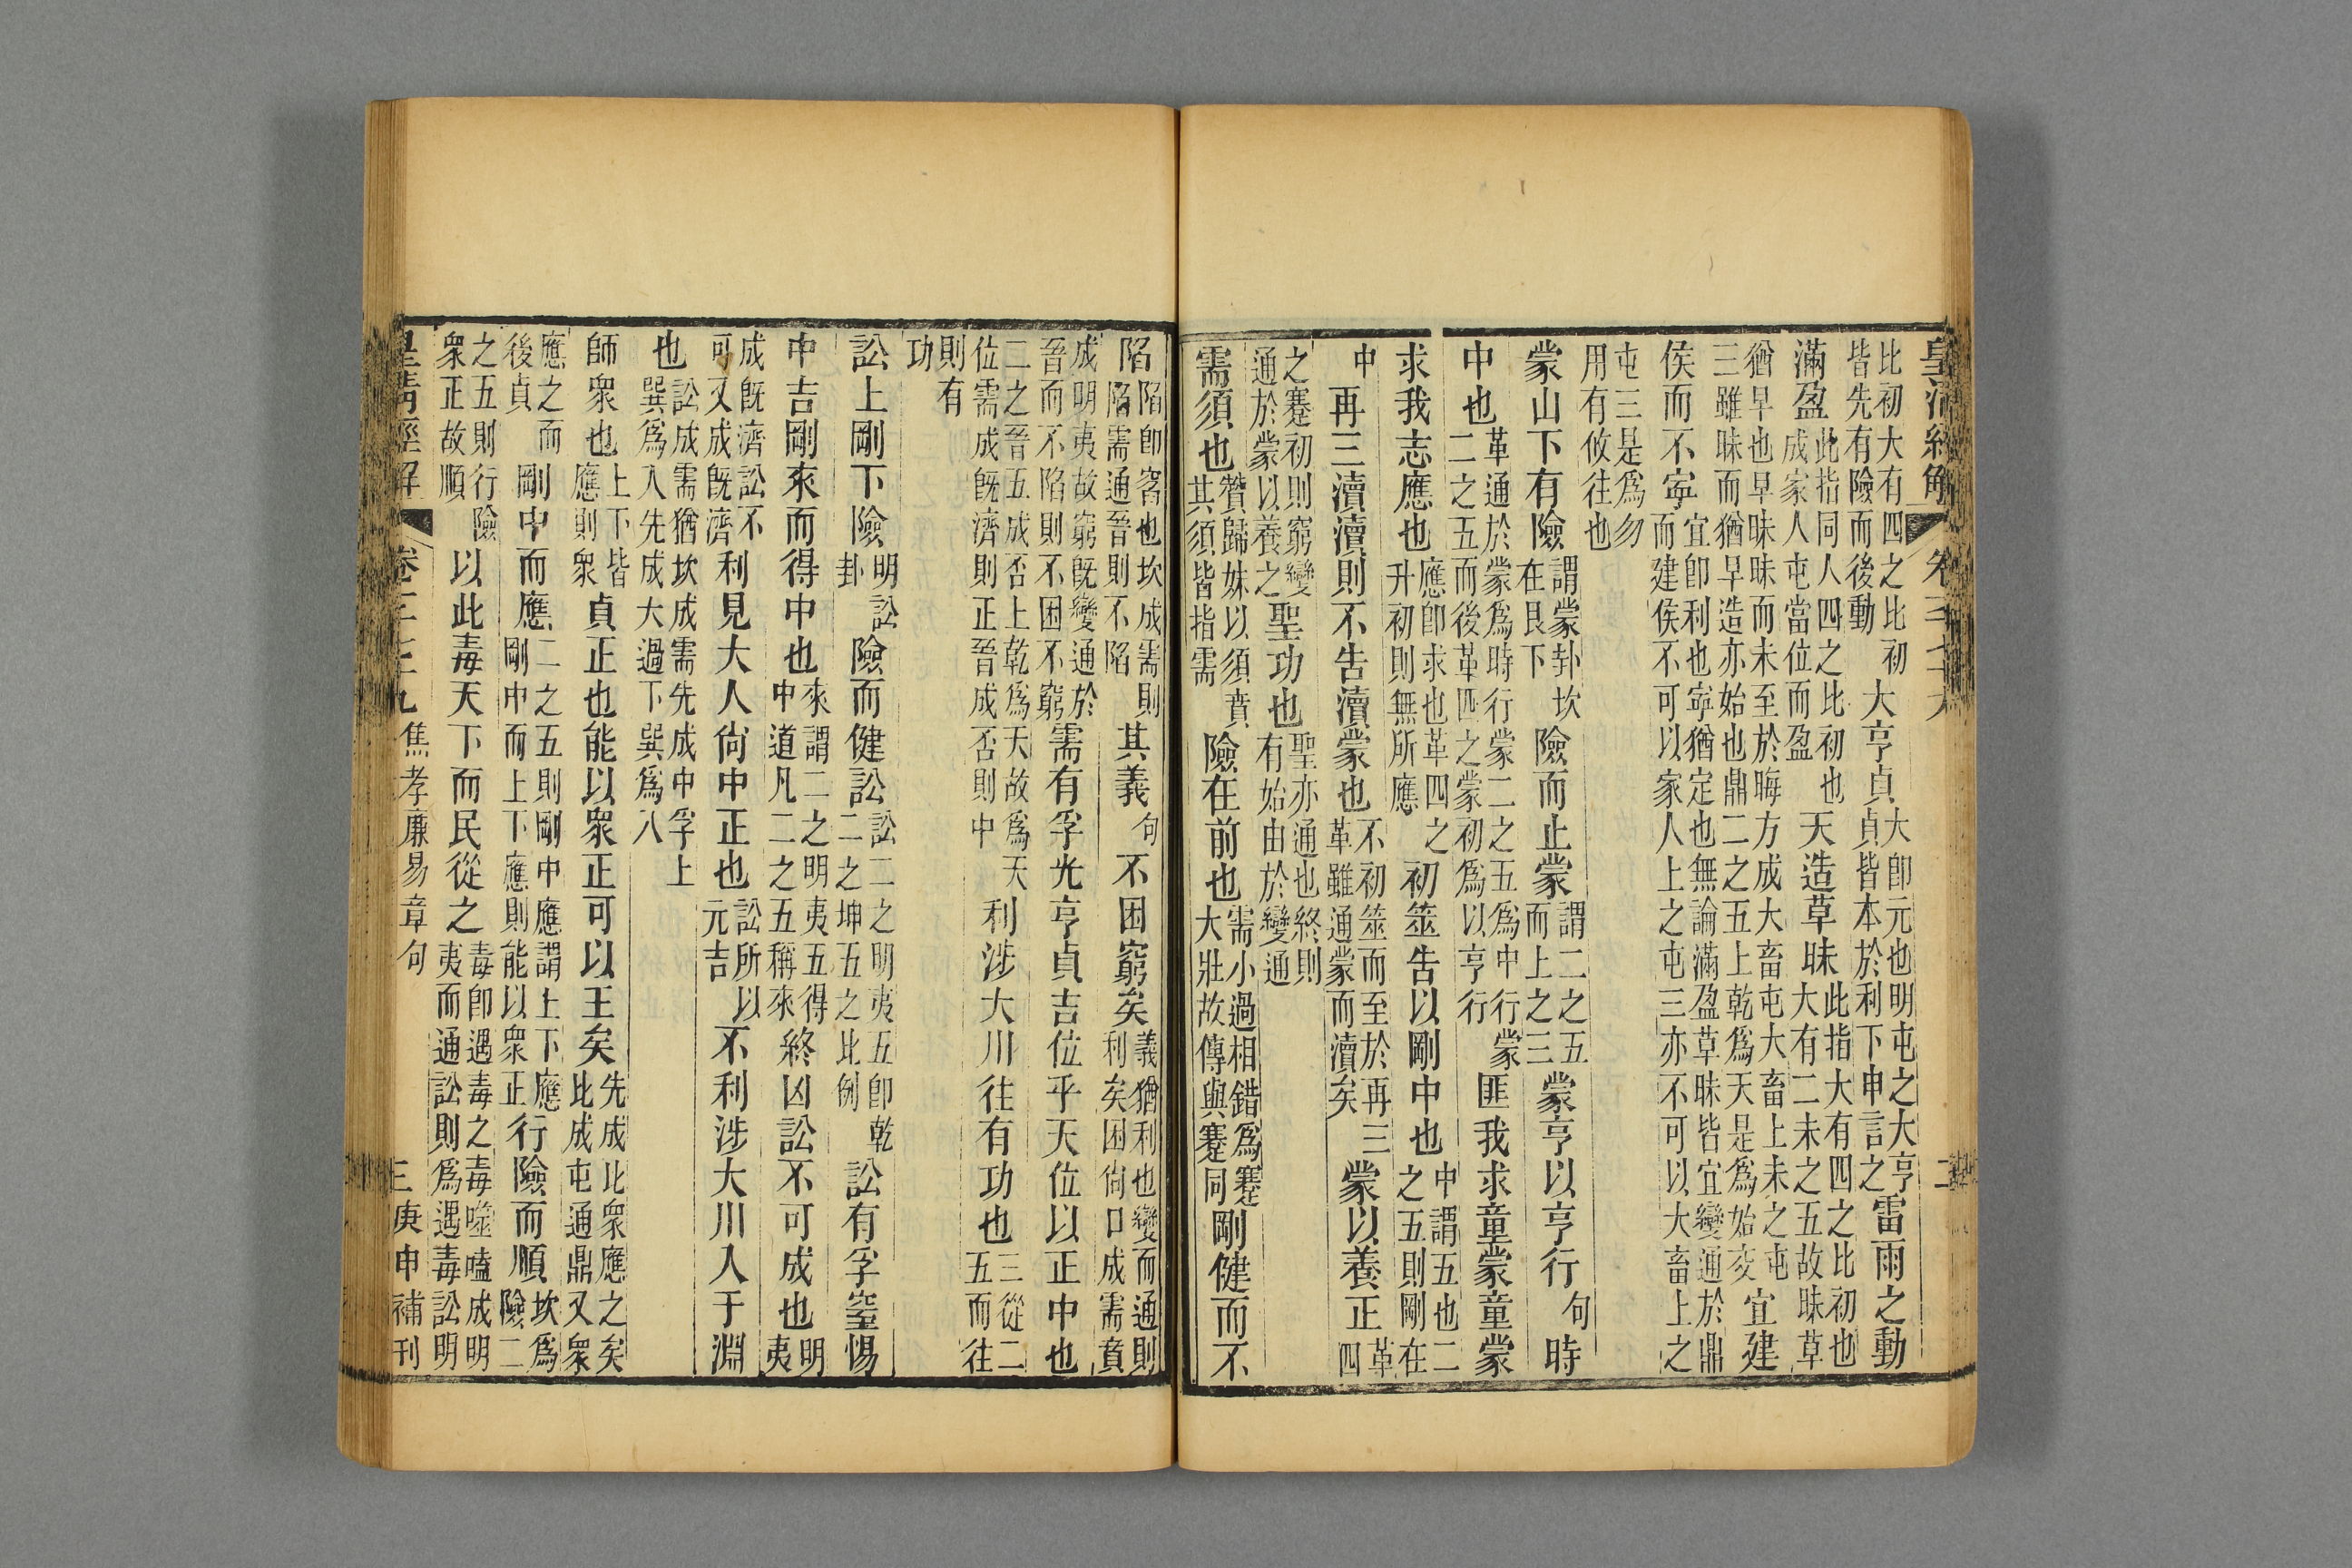 皇清經解
二
比初大有四之比初
皆先有險而後動
大亨貞
大卽元也明屯之大亨
貞皆本於利下申言之
雷雨之動
滿盈
此指同人四之比初也
成家人屯當位而盈
天造草昧
此指大有四之比初也
大有二未之五故昧草
猶早也早昧昧而未至於晦方成大畜屯大畜上未之屯
三雖昧而猶早造亦始也鼎二之五上乾爲天是爲始交
宜建
侯而不寧
宜卽利也寧猶定也無論滿盈草昧皆宜變通於鼎
而建侯不可以家人上之屯三亦不可以大畜上之
屯三是爲勿
用有攸往也
蒙山下有險
謂蒙卦坎
在艮下
險而止蒙
謂二之五
而上之三
蒙亨以亨行句時
中也
革通於蒙爲時行蒙二之五爲中行蒙
二之五而後革四之蒙初爲以亨行
匪我求童蒙童蒙
求我志應也
應卽求也革四之
升初則無所應
初筮告以剛中也
中謂五也二
之五則剛在
中
再三瀆瀆則不告瀆蒙也
不初筮而至於再三
革雖通蒙而瀆矣
蒙以養正
革
四
之蹇初則窮變
通於蒙以養之
聖功也
聖亦通也終則
有始由於變通
需須也
賛歸妹以須賁
其須皆指需
險在前也
需小過相錯爲蹇
大壯故傳與蹇同
剛健而不
陷
陷卽窞也坎成需則
陷需通晉則不陷
其義句不困窮矣
義猶利也變而通則
利矣困尙口成需賁
成明夷故窮旣變通於
晉而不陷則不困不窮
需有孚光亨貞吉位乎天位以正中也
二之晉五成否上乾爲天故爲天
位需成旣濟則正晉成否則中
利涉大川往有功也
三從二
五而往
則有
功
訟上剛下險
明訟
卦
險而健訟
訟二之明夷五卽乾
二之坤五之比例
訟有孚窒惕
中吉剛來而得中也
來謂二之明夷五得
中道凡二之五稱來
終凶訟不可成也
明
夷
成旣濟訟不
可又成旣濟
利見大人尙中正也
訟所以
元吉
不利涉大川入于淵
也
訟成需猶坎成需先成中孚上
巽爲入先成大過下巽爲入
師衆也
上下皆
應則衆
貞正也能以衆正可以王矣
先成比衆應之矣
比成屯通鼎又衆
應之而
後貞
剛中而應
二之五則剛中應謂上下應
剛中而上下應則能以衆正
行險而順
坎爲
險二
之五則行險
衆正故順
以此毒天下而民從之
毒卽遇毒之毒噬嗑成明
夷而通訟則爲遇毒訟明
皇清經解
焦孝廉易章句
三庚申補刊